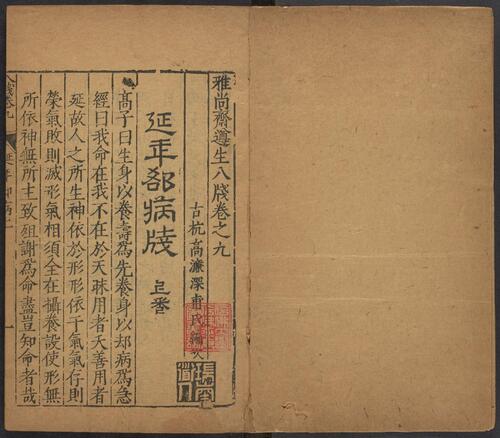 雅尚齋遵生八牋卷之九
古杭高濂深甫氏編次
延年郤病牋 上卷
高子曰生身以養壽爲先養身以却病爲急
經曰我命在我不在於天昧用者夭善用者
延故人之所生神依於形形依于氣氣存則
榮氣敗則滅形氣相須全在攝養設使形無
所依神無所主致殂謝爲命盡豈知命者哉